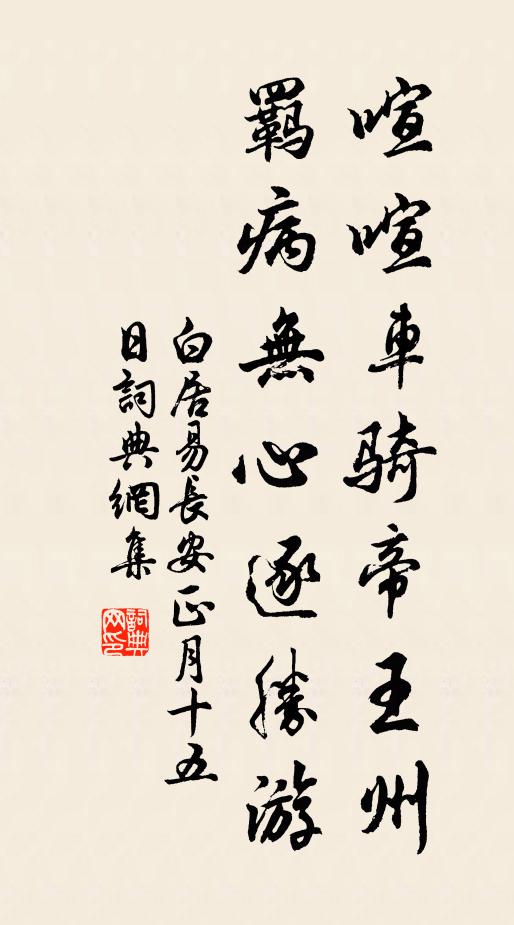 喧喧車骑帝王州
羈病無心逐勝游
白居易長安正月十五
日詞典網集
詞典网印